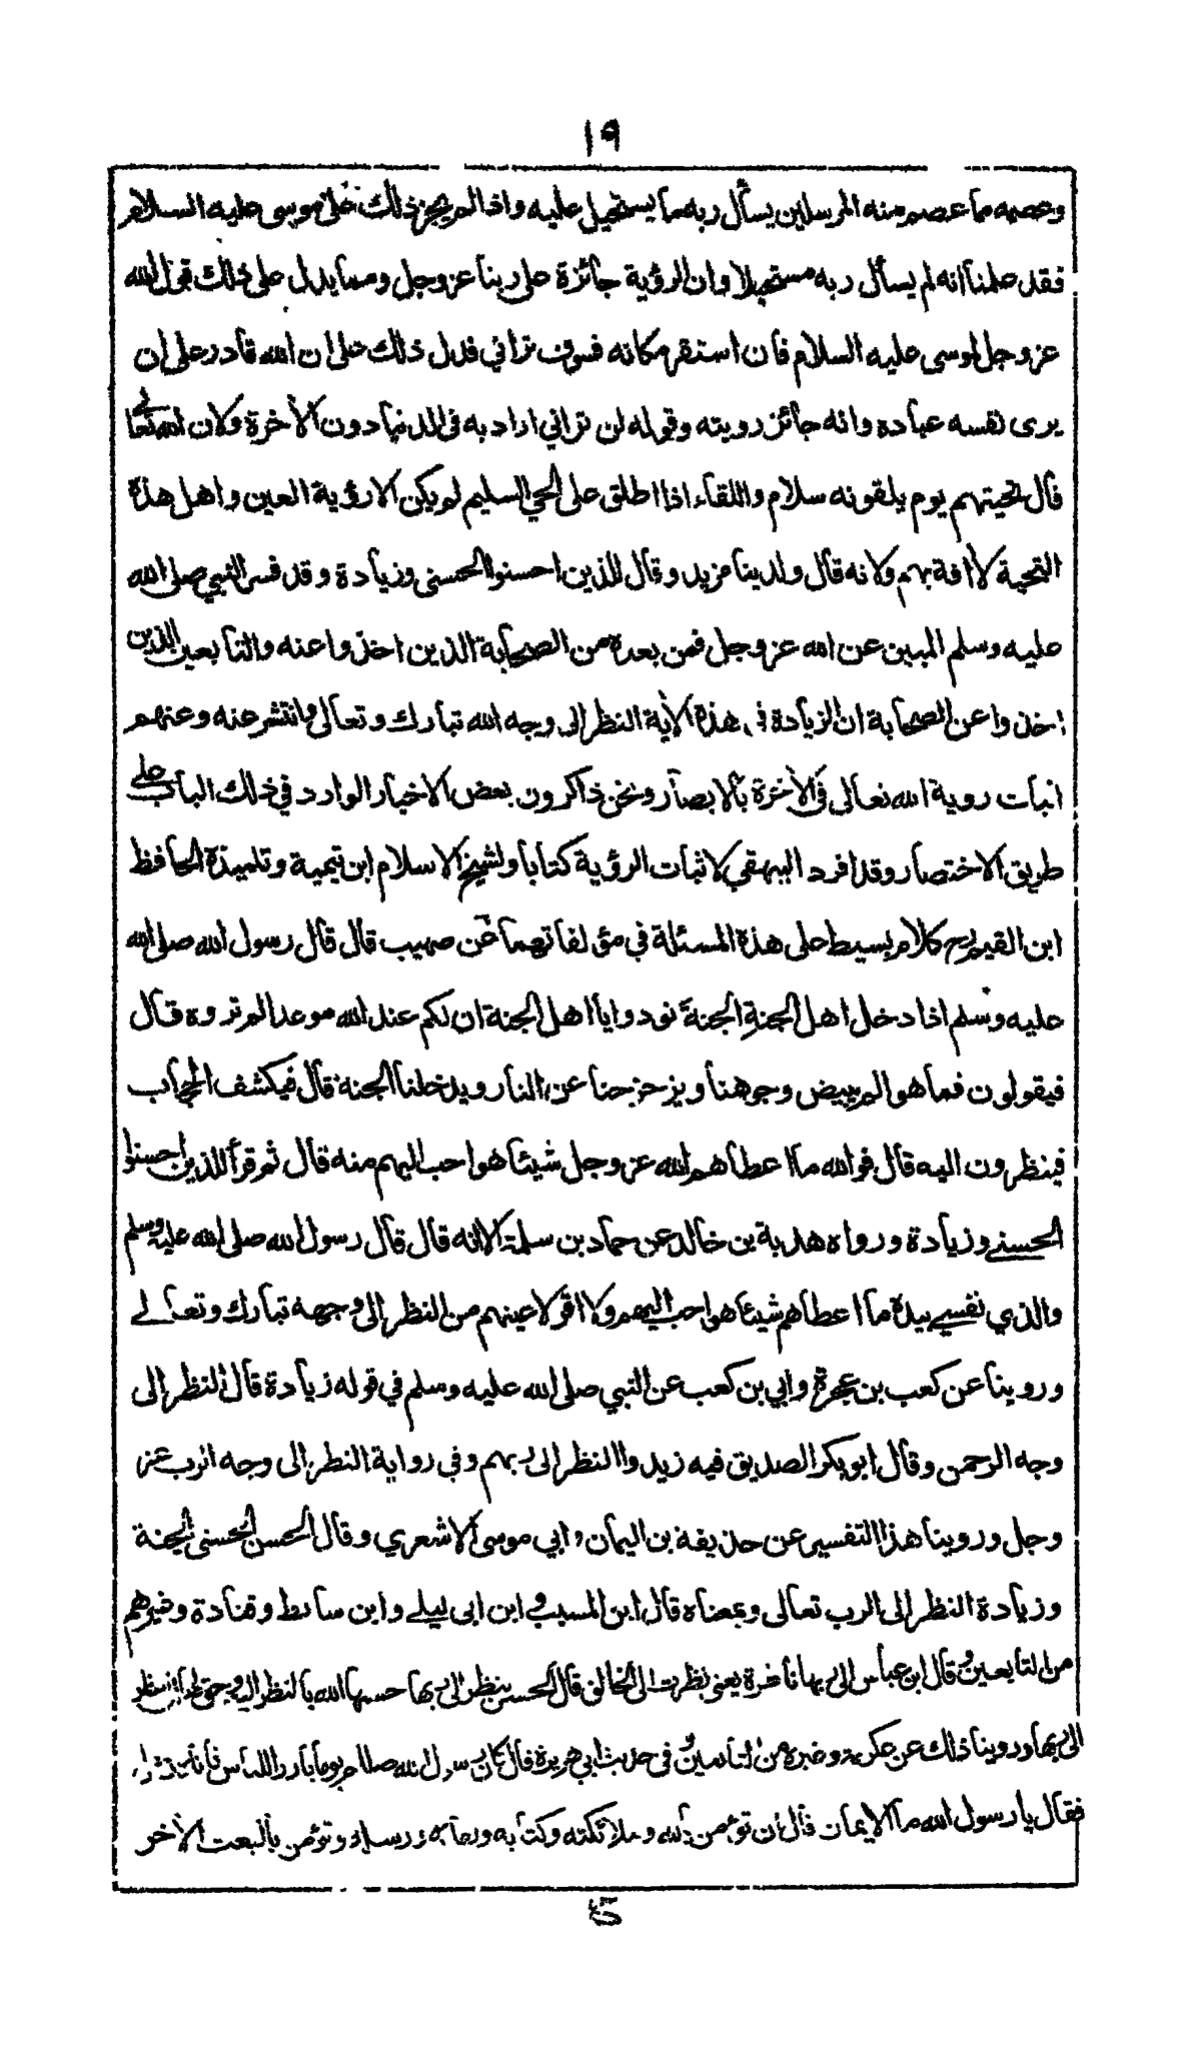 ١٩
وعصمه مما عصم منه المرسلين يسأل ربه ما يستحيل عليه واذا لم يجز ذلك على موسى عليه السلام
فقد علمنا انه لم يسأل ربه مستحيلا وان الرؤية جائزة على ربنا عز وجل ومما يدل على ذلك قول الله
عز وجل لموسى عليه السلام فان استقر مكانه فسوف تراني فدل ذلك على ان الله قادر على ان
يرى نفسه عباده وانه جائز رويته وقوله لن تراني اراد به في الدنيا دون الأخرة ولان الله تعالى
قال تحيتهم يوم يلقونه سلام واللقاء اذا اطلق على الحي السليم لم يكن الا رؤية العين واهل هذه
التحية لا أفة بهم ولانه قال ولدينا مزيد وقال للذين احسنوا الحسنى وزيادة وقد فسر النبي صلى الله
عليه وسلم المبين عن الله عز وجل فمن بعده من الصحابة الذين اخذوا عنه والتابعين الذين
اخذوا عن الصحابة ان الزيادة في هذه الأية النظر الى وجه الله تبارك وتعالى وانتشر عنه وعنهم
اثبات روية الله تعالى في الأخرة بالابصار ونحن ذاكرون بعض الاخبار الوارد في ذلك الباب على
طريق الاختصار وقد افرد البيهقي لاثبات الرؤية كتابا ولشيخ الاسلام ابن تيمية وتلميذه الحافظ
ابن القيم رح كلام بسيط على هذه المسئلة في مؤلفاتهما عن صهيب قال قال رسول الله صلى الله
عليه وسلم اذا دخل اهل الجنةِ الجنةَ نودوا يا اهل الجنة ان لكم عند الله موعدا لم تروه قال
فيقولون فما هو الم يبيض وجوهنا ويزحزحنا عن النار ويدخلنا الجنة قال فيكشف الحجاب
فينظرون اليه قال فو الله ما اعطاهم الله عز وجل شيئا هو احب اليهم منه قال ثم قرأ للذين احسنوا
الحسنى وزيادة ورواه هدبة بن خالد عن حماد بن سلمة الا انه قال قال رسول الله صلى الله عليه وسلم
والذي نفسي بيده ما اعطاهم شيئا هو احب اليهم ولا اقر لاعينهم من النظر الى وجهه تبارك وتعالے
وروينا عن كعب بن عجرة وابي بن كعب عن النبي صلى الله عليه وسلم في قوله زيادة قال النظر الى
وجه الرحمن وقال ابو بكر الصديق فيه زيدوا النظر الى ربهم وفي رواية النظر الى وجه الرب عز
وجل وروينا هذا التفسير عن حذيفة بن اليمان وابي موسى الاشعري وقال الحسن الحسنى الجنة
وزيادة النظر الى الرب تعالى وبمعناه قال ابن المسيب وابن ابى ليلے وابن سابط وقتادة وغيرهم
من التابعين وقال ابن عباس الى ربها ناظرة يعني نظرت الى الخالق قال الحسن ينظر الى ربها حسنها الله بالنظر اليه وحق لها ان تنظر
الى ربها وروينا ذلك عن عكرمة وغيره من التابعين وفي حديث ابي هريرة قال كان رسول الله صللم يوما بارزا للناس فاتاه
فقال يا رسول الله ما الايمان قال ان تؤمن بالله وملائكته وكتابه ورسله وتؤمن بالبعث الأخر